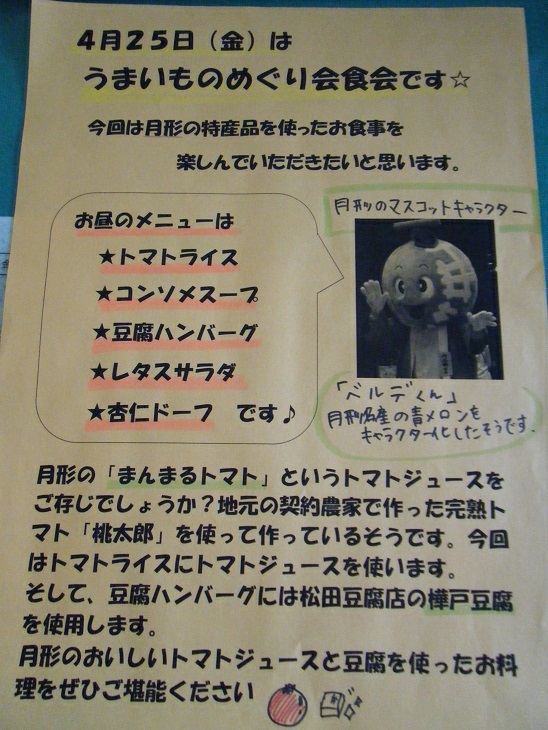 4月25日（金）は
うまいものめぐり会食会です☆
今回は月形の特産品を使ったお食事を
楽しんでいただきたいと思います。
お昼のメニューは
★トマトライス
★コンソメスープ
★豆腐ハンバーグ
★レタスサラダ
★杏仁ドーフ　です♪
月形のマスコットキャラクター
「ベルデくん」
月形名産の青メロンを
キャラクター化したそうです。
月形の「まんまるトマト」というトマトジュースを
ご存じでしょうか？地元の契約農家で作った完熟ト
マト「桃太郎」を使って作っているそうです。今回
はトマトライスにトマトジュースを使います。
そして、豆腐ハンバーグには松田豆腐店の樺戸豆腐
を使用します。
月形のおいしいトマトジュースと豆腐を使ったお料
理をぜひご堪能ください